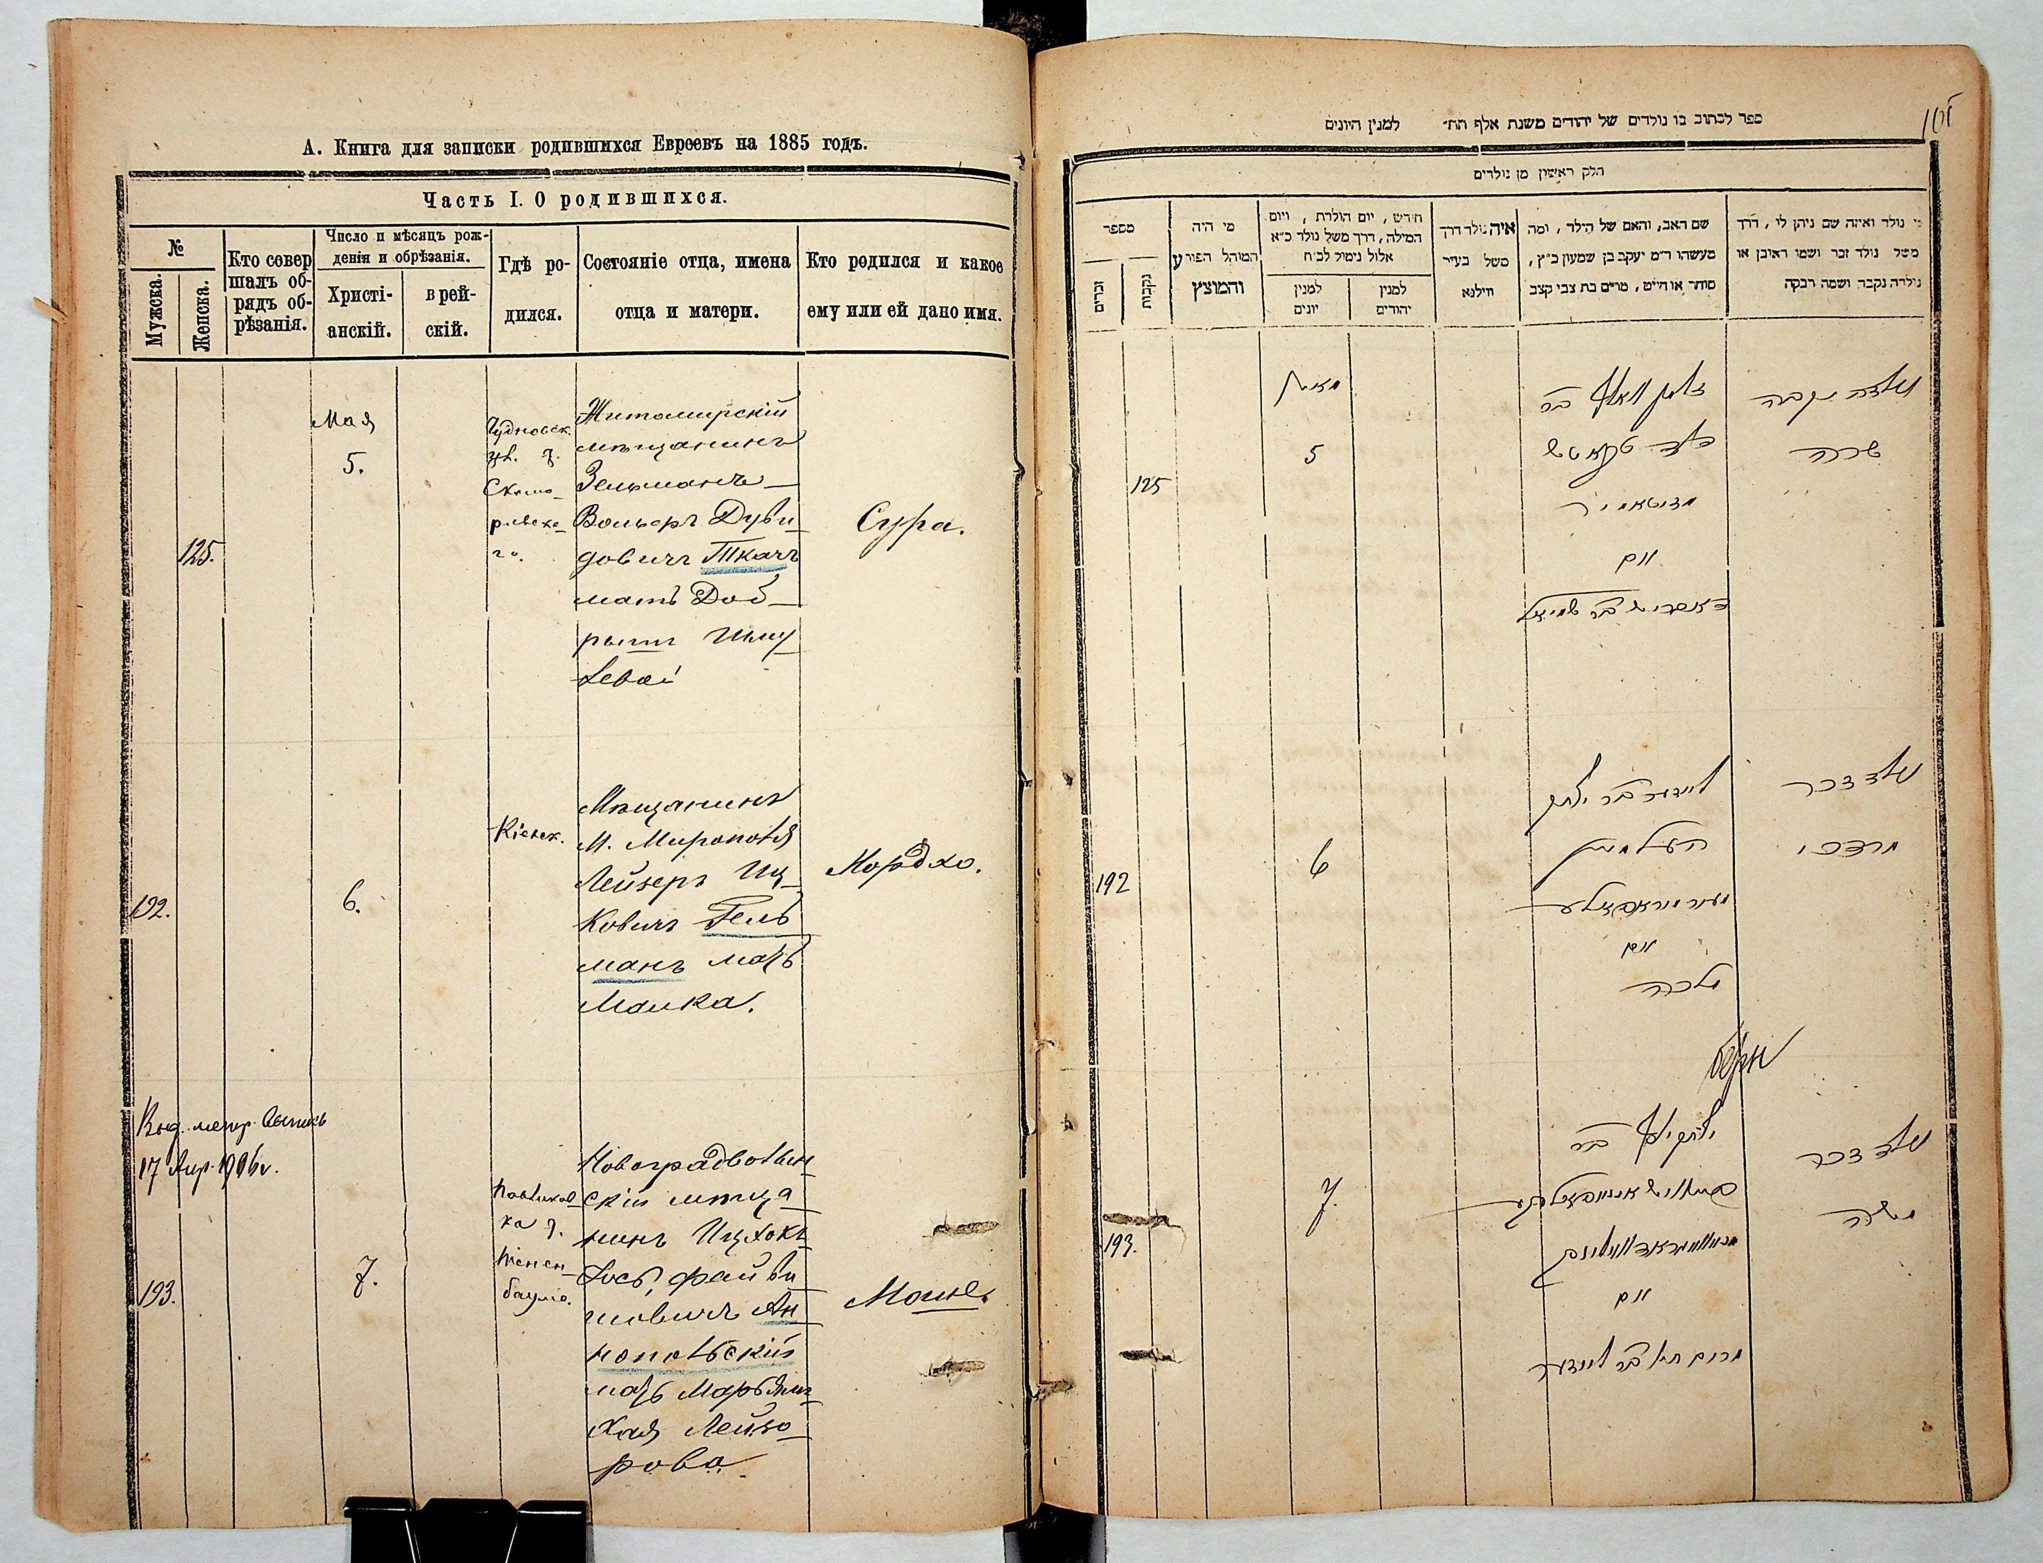 А. Книга для записки родившихся Евреевъ на 1885 годъ.
Часть I. О родившихся.
№
Мужска.
Женска.
Кто совер
шалъ об-
рядъ об-
рѣзанія.
Число и мѣсяцъ рож-
денія и обрѣзанія.
Христі-
анскій.
в рей-
скій.
Гдѣ ро-
дился.
Состояніе отца, имена
отца и матери.
Кто родился и какое
ему или ей дано имя.
125.
Мая
5.
Чудновск.
Житомирскій
мѣщанинъ
Зельманъ-
Вольфъ Дуви-
довичъ Ткачъ
мать Доб-
рышъ Шму
левой
Сура.
192.
6.
Кіевск.
Мѣщанинъ
М. Мирополя
Лейзеръ Иц-
ковичъ Гель
манъ мать
Малка.
Мордхо.
Выд. метр. выпись
17 Апр. 1906 г.
193.
7.
Новоградволын-
скій мѣща
нинъ Ицхокъ-
Лось Файви
шовичъ Ан
нопольскій
мать Марьямъ-
Хая Лейзо
рова.
Мошко
ספר לכתוב בו נולדים של יהודים משנת אלף תת״ למנין היונים
חלק ראשון מן נולדים
מספר
זכרים
נקבות
מי היה
המוהל הפורע
והמוצץ
חודש, יום הולדת, ויום
המילה, דרך משל נולד כ״א
אלול נימול לכ״ח
למנין
יונים
למנין
יהודים
איה נולד דרך
משל בעיר
ווילנא
שם האב, והאם של הילד, ומה
מעשהו ד״מ יעקב בן שמעון כ״ץ,
סוחר או חייט, מרים בת צבי קצב
מי נולד ואיזה שם ניתן לו, דרך
משל נולד זכר ושמו ראובן או
נולדה נקבה ושמה רבקה
125
מאי
5
זלמן וואלף בר
דוד טקאטש
זיטאמיר
ואם
נולדה נקבה
שרה
192
6
לייזער בר יצחק
העלמאן
ואם
מלכה
נולד זכר
מרדכי
193.
7.
בר
ואם
מרים חי׳ בר לייזער
נולד זכר
משה